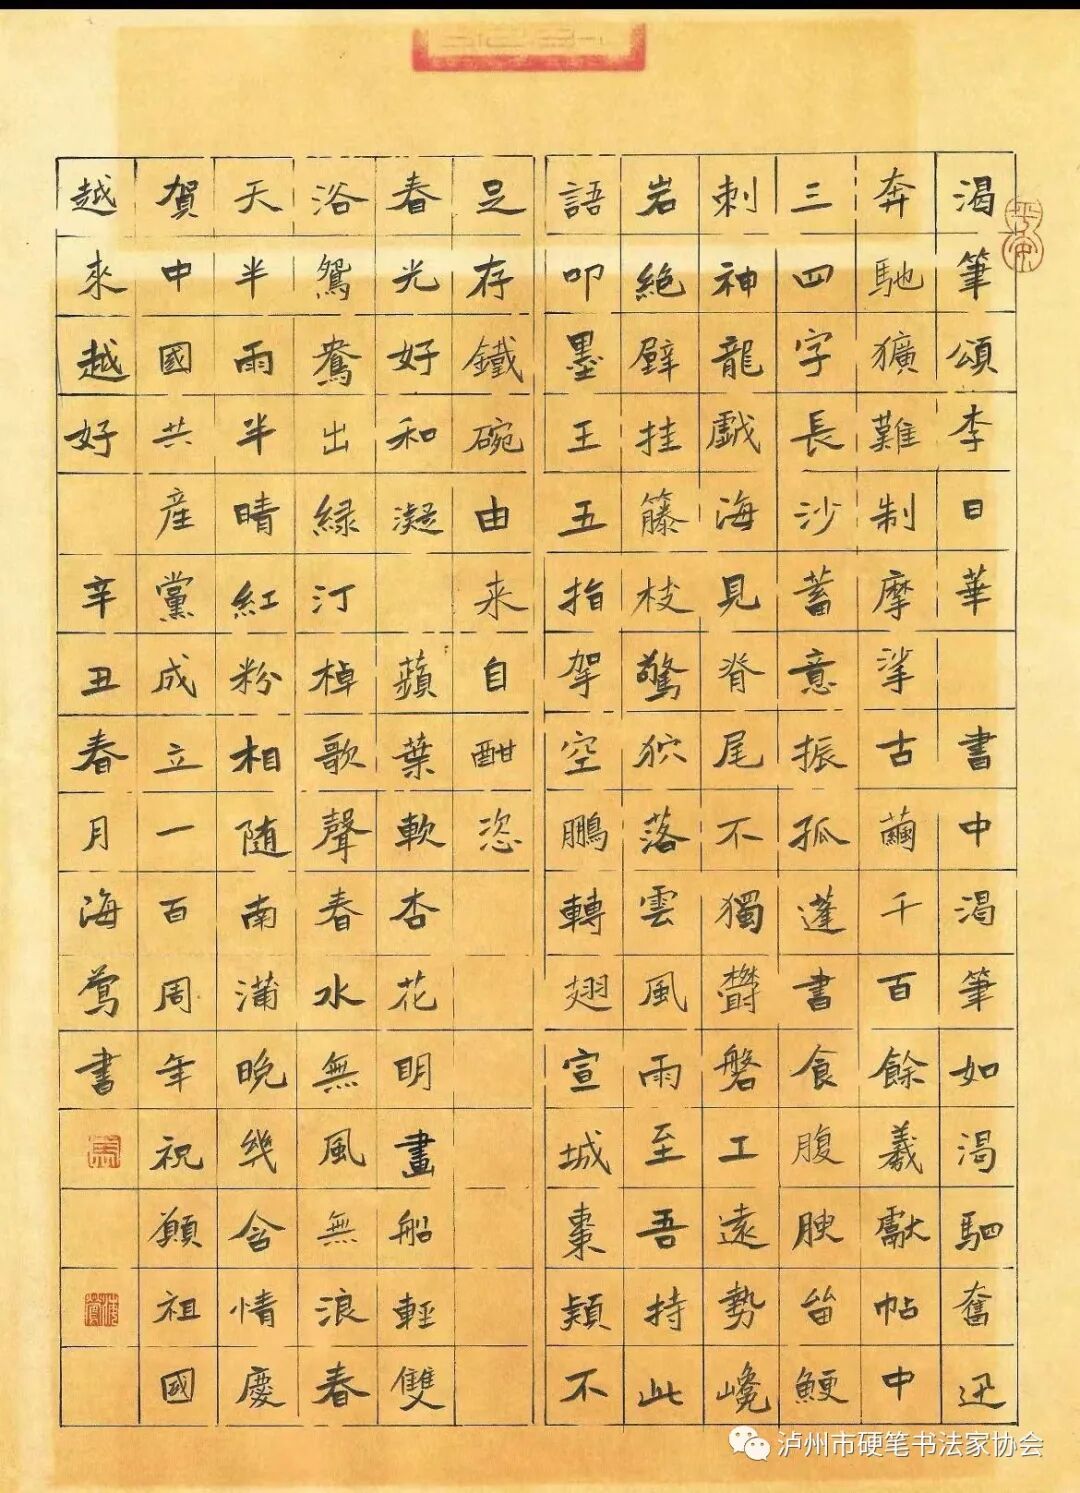 渴筆頌李日華　書中渴筆如渴驷奮迅
奔馳獷難制摩挲古繭千百餘羲獻帖中
三四字長沙蓄意振孤蓬書食腹腴留鯁
刺神龍戲海見脊尾不獨鬱磐工遠勢巉
岩絶壁挂籐枝驚狖落雲風雨至吾持此
語叩墨王五指挐空鵬轉翅宣城棗穎不
足存鐵碗由来自酣恣
春光好和凝　蘋葉軟杏花明畫船輕雙
浴鴛鴦出緑汀棹歌聲春水無風無浪春
天半雨半晴紅粉相随南浦晚幾含情慶
賀中國共産黨成立一百周年祝願祖國
越來越好　辛丑春月海鶯書
泸州市硬笔书法家协会